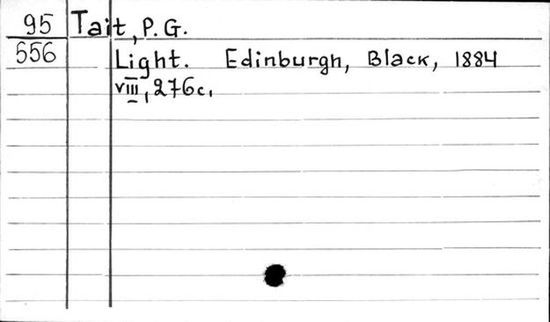 95 Tait, P.G.
556 Light. Edinburgh, Black, 1884
VIII, 276c.